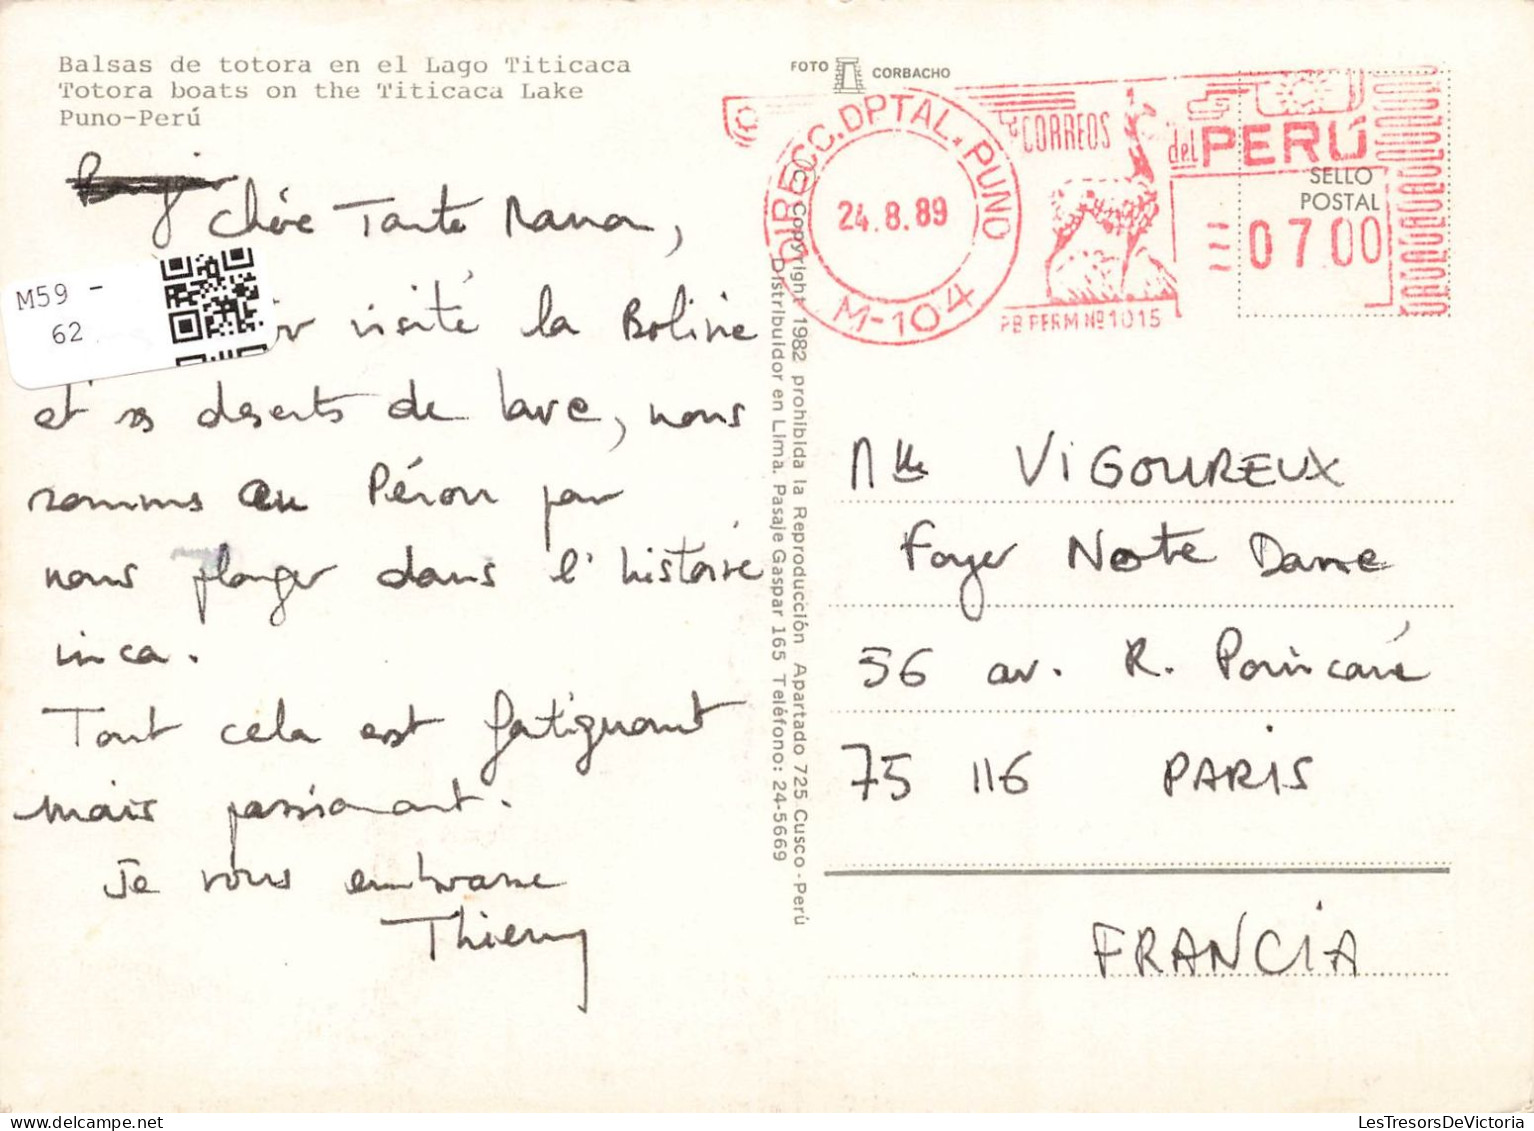 Balsas de totora en el Lago Titicaca
Totora boats on the Titicaca Lake
Puno-Perú
FOTO CORBACHO
Chère Tante Manon,
visité la Bolivie
et ses déserts de lave, nous
sommes au Pérou pour
nous plonger dans l'histoire
inca.
Tout cela est fatiguant
mais passionant.
Je vous embrasse
Thierry
M59 -
62
© Copyright 1982 prohibida la Reproducción Apartado 725 Cusco - Perú
Distribuidor en Lima. Pasaje Gaspar 165 Teléfono: 24-5669
DIRECC. DPTAL. PUNO
24.8.89
M-104
CORREOS
del PERÚ
SELLO
POSTAL
0700
PB PERM Nº 1015
Mlle VIGOUREUX
Foyer Notre Dame
56 av. R. Poincaré
75 116 PARIS
FRANCIA
LesTresorsDeVictoria